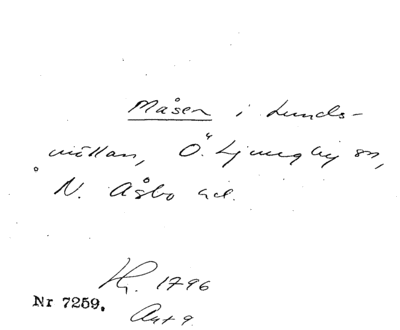 Måsen i Lunds-
möllan, Ö. Ljungby sn,
N. Åsbo hd.
1796
Nr 7259.